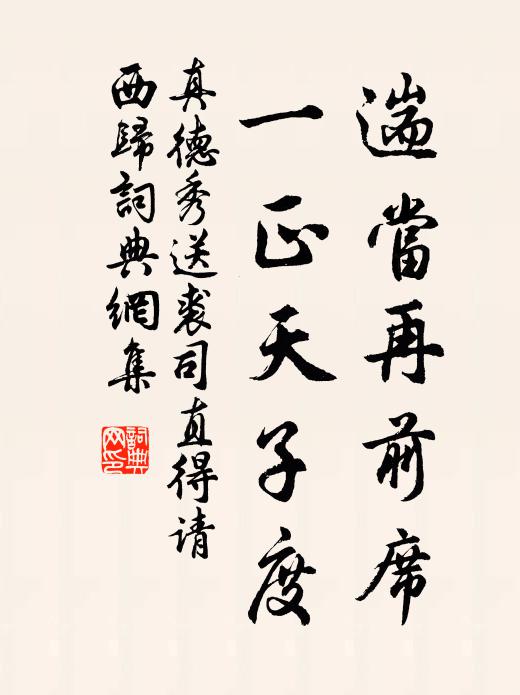 遄當再前席
一正天子度
真德秀送裘司直得请
西歸詞典網集
詞典
网印